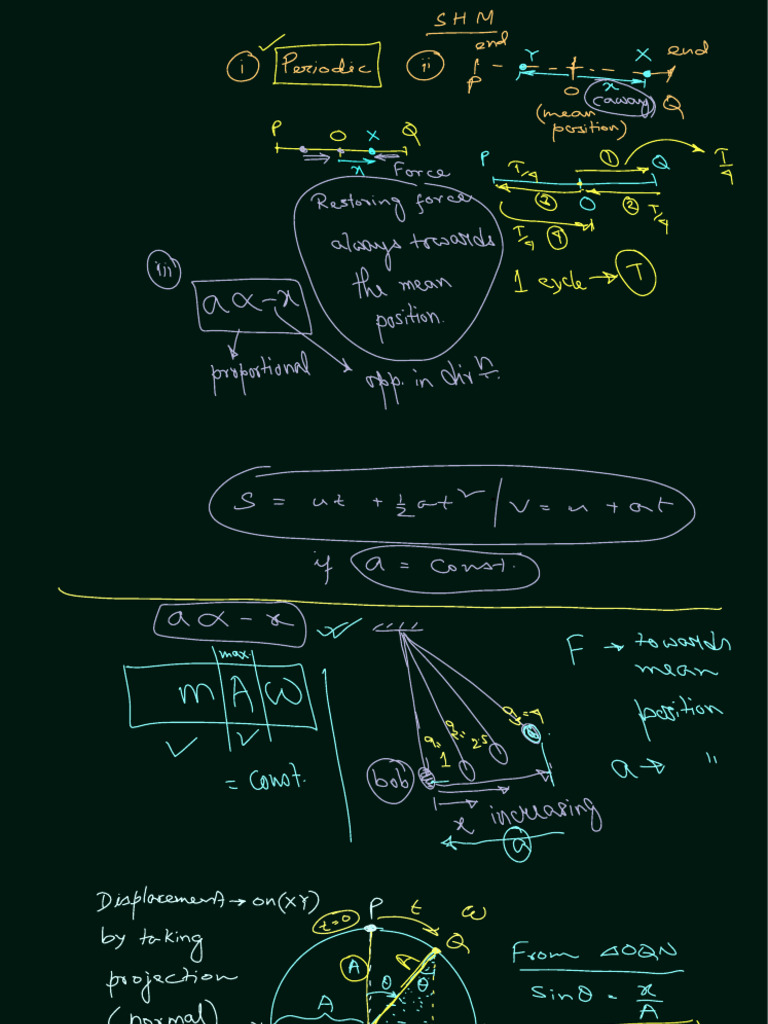 SHM
(i) Periodic (ii) end P Y O x X end Q
(away)
(mean
position)
P O X Q
x
Force
P T/4 ① Q T/4
③ O ② T/4
T/4 ④
1 cycle → T
Restoring force
always towards
the mean
position.
(iii)
a ∝ -x
proportional
opp. in dirⁿ.
S = ut + ½at² / V = u + at
if a = const.
a ∝ - x
max
m A ω
= const.
bob
a₁=1
a₂=2.5
a₃=4
x increasing
a
F → towards
mean
position
a → "
Displacement → on (XY)
by taking
projection
(normal)
t=0 P t ω
Q
A A θ θ
A
From △OQN
Sinθ = x/A